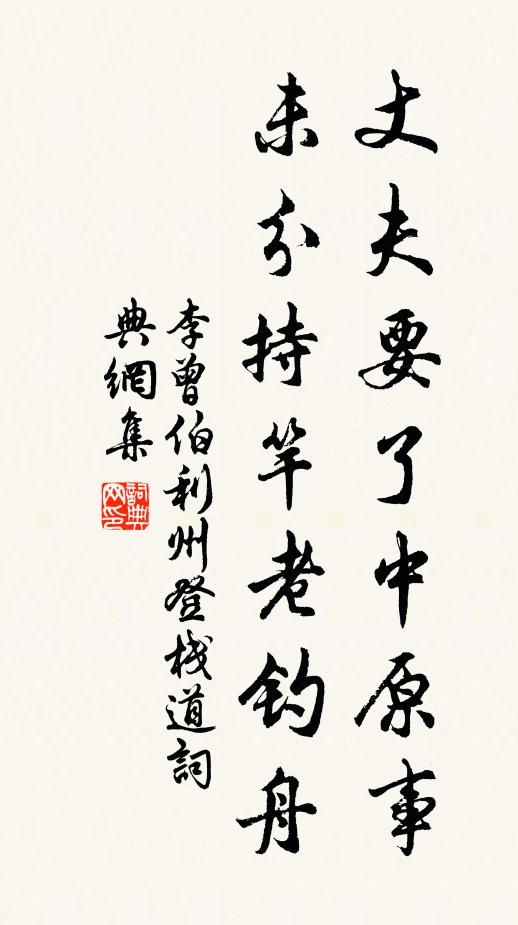 丈夫要了中原事
未分持竿老钓舟
李曾伯利州登栈道詞
典網集
詞典
网印